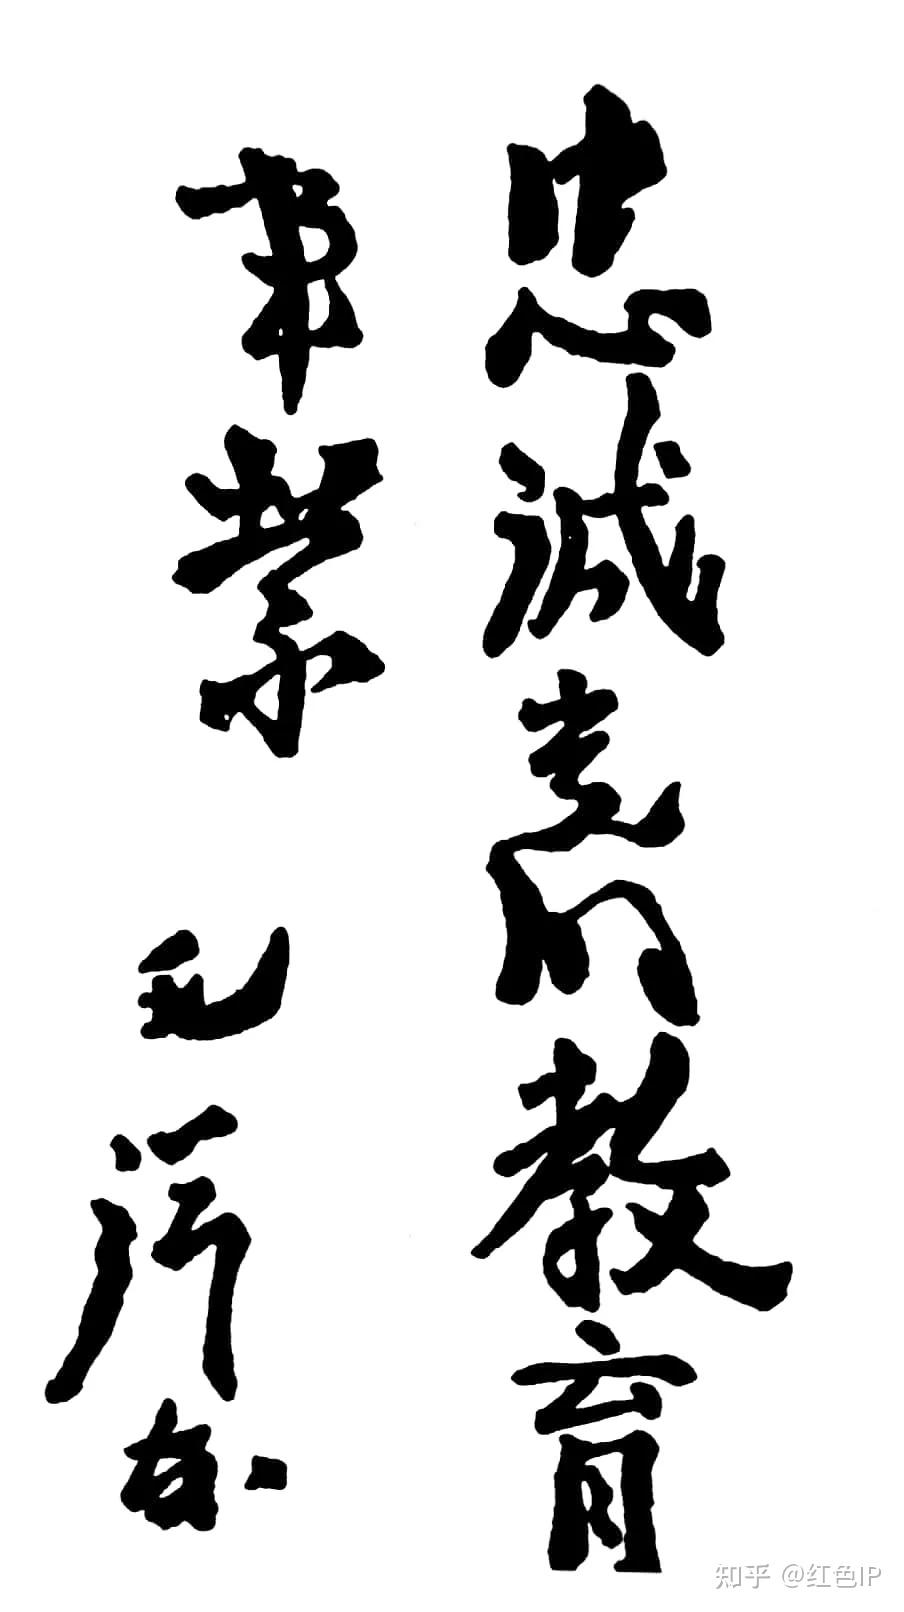 忠诚党的教育
事業 毛泽东
知乎 @红色IP